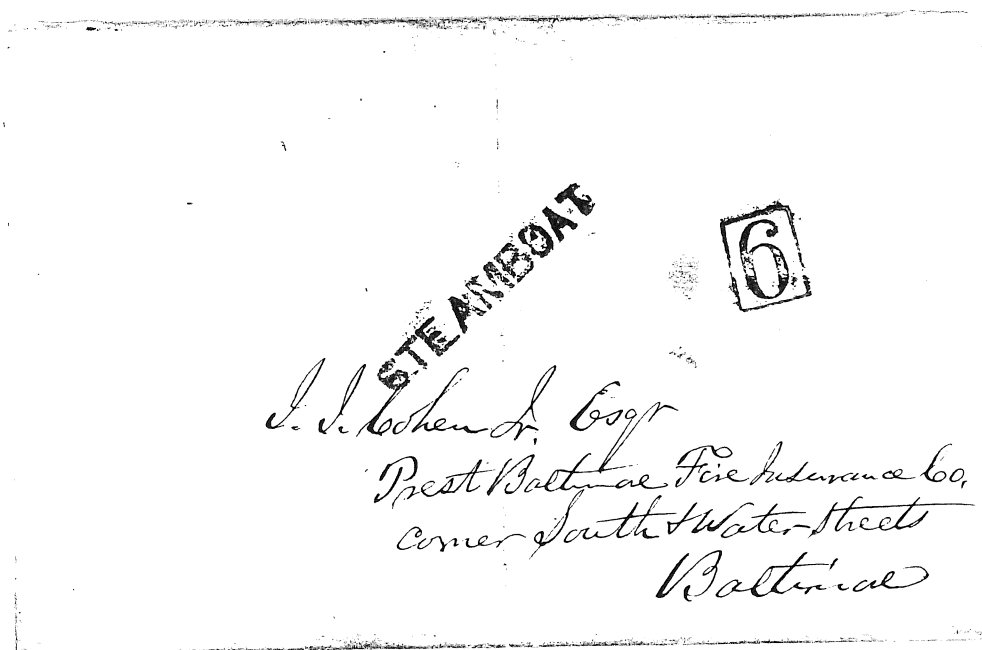 STEAMBOAT
6
J. I. Cohen Jr. Esqr
Prest Baltimore Fire Insurance Co.
corner South & Water Streets
Baltimore